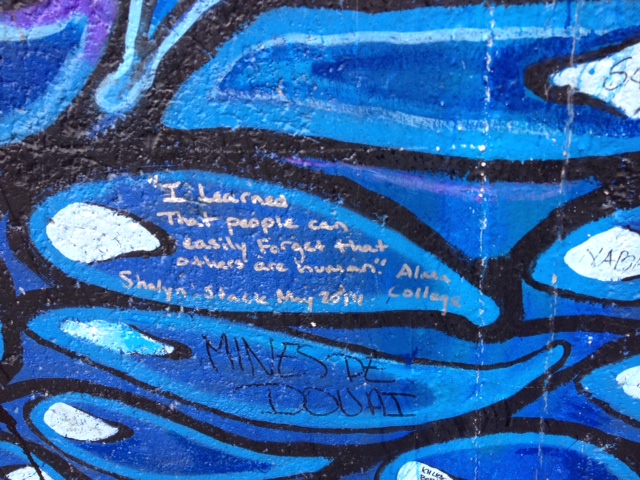 "I Learned
That people can
easily Forget that
others are human."
Shalyn Stack May 2014
Alma
College
MINES DE
DOUAI